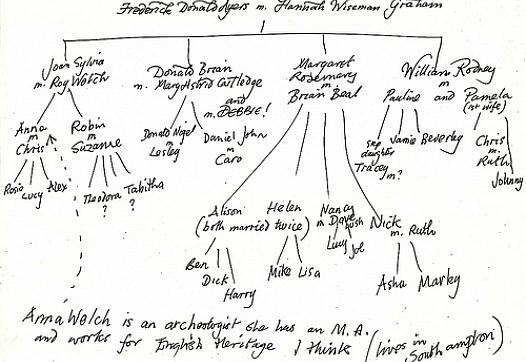 Frederick Donald Dyers m. Hannah Wiseman Graham
Joan Sylvia
m. Roy Welch
Donald Brian
m. Mary Astrid Cuttlodge
and
m. DEBBIE!
Margaret
Rosemary
m
Brian Beal
William Rodney
m
Pauline and Pamela
(1st wife)
Anna
m
Chris
Robin
m
Suzanne
Donald Nigel
m
Lesley
Daniel John
m
Caro
step
daughter
Tracey
m?
Jamie Beverley
Chris
m.
Ruth
Johnny
Rosie Lucy Alex
Theodora
?
Tabitha
?
Alison Helen
(both married twice)
Nancy
m Dave
Rush
Nick
m. Ruth
Lucy Joe
Ben
Dick
Harry
Mike Lisa
Asha Marley
Anna Welch is an archeologist she has an M.A.
and works for English Heritage I think (lives in
Southampton)